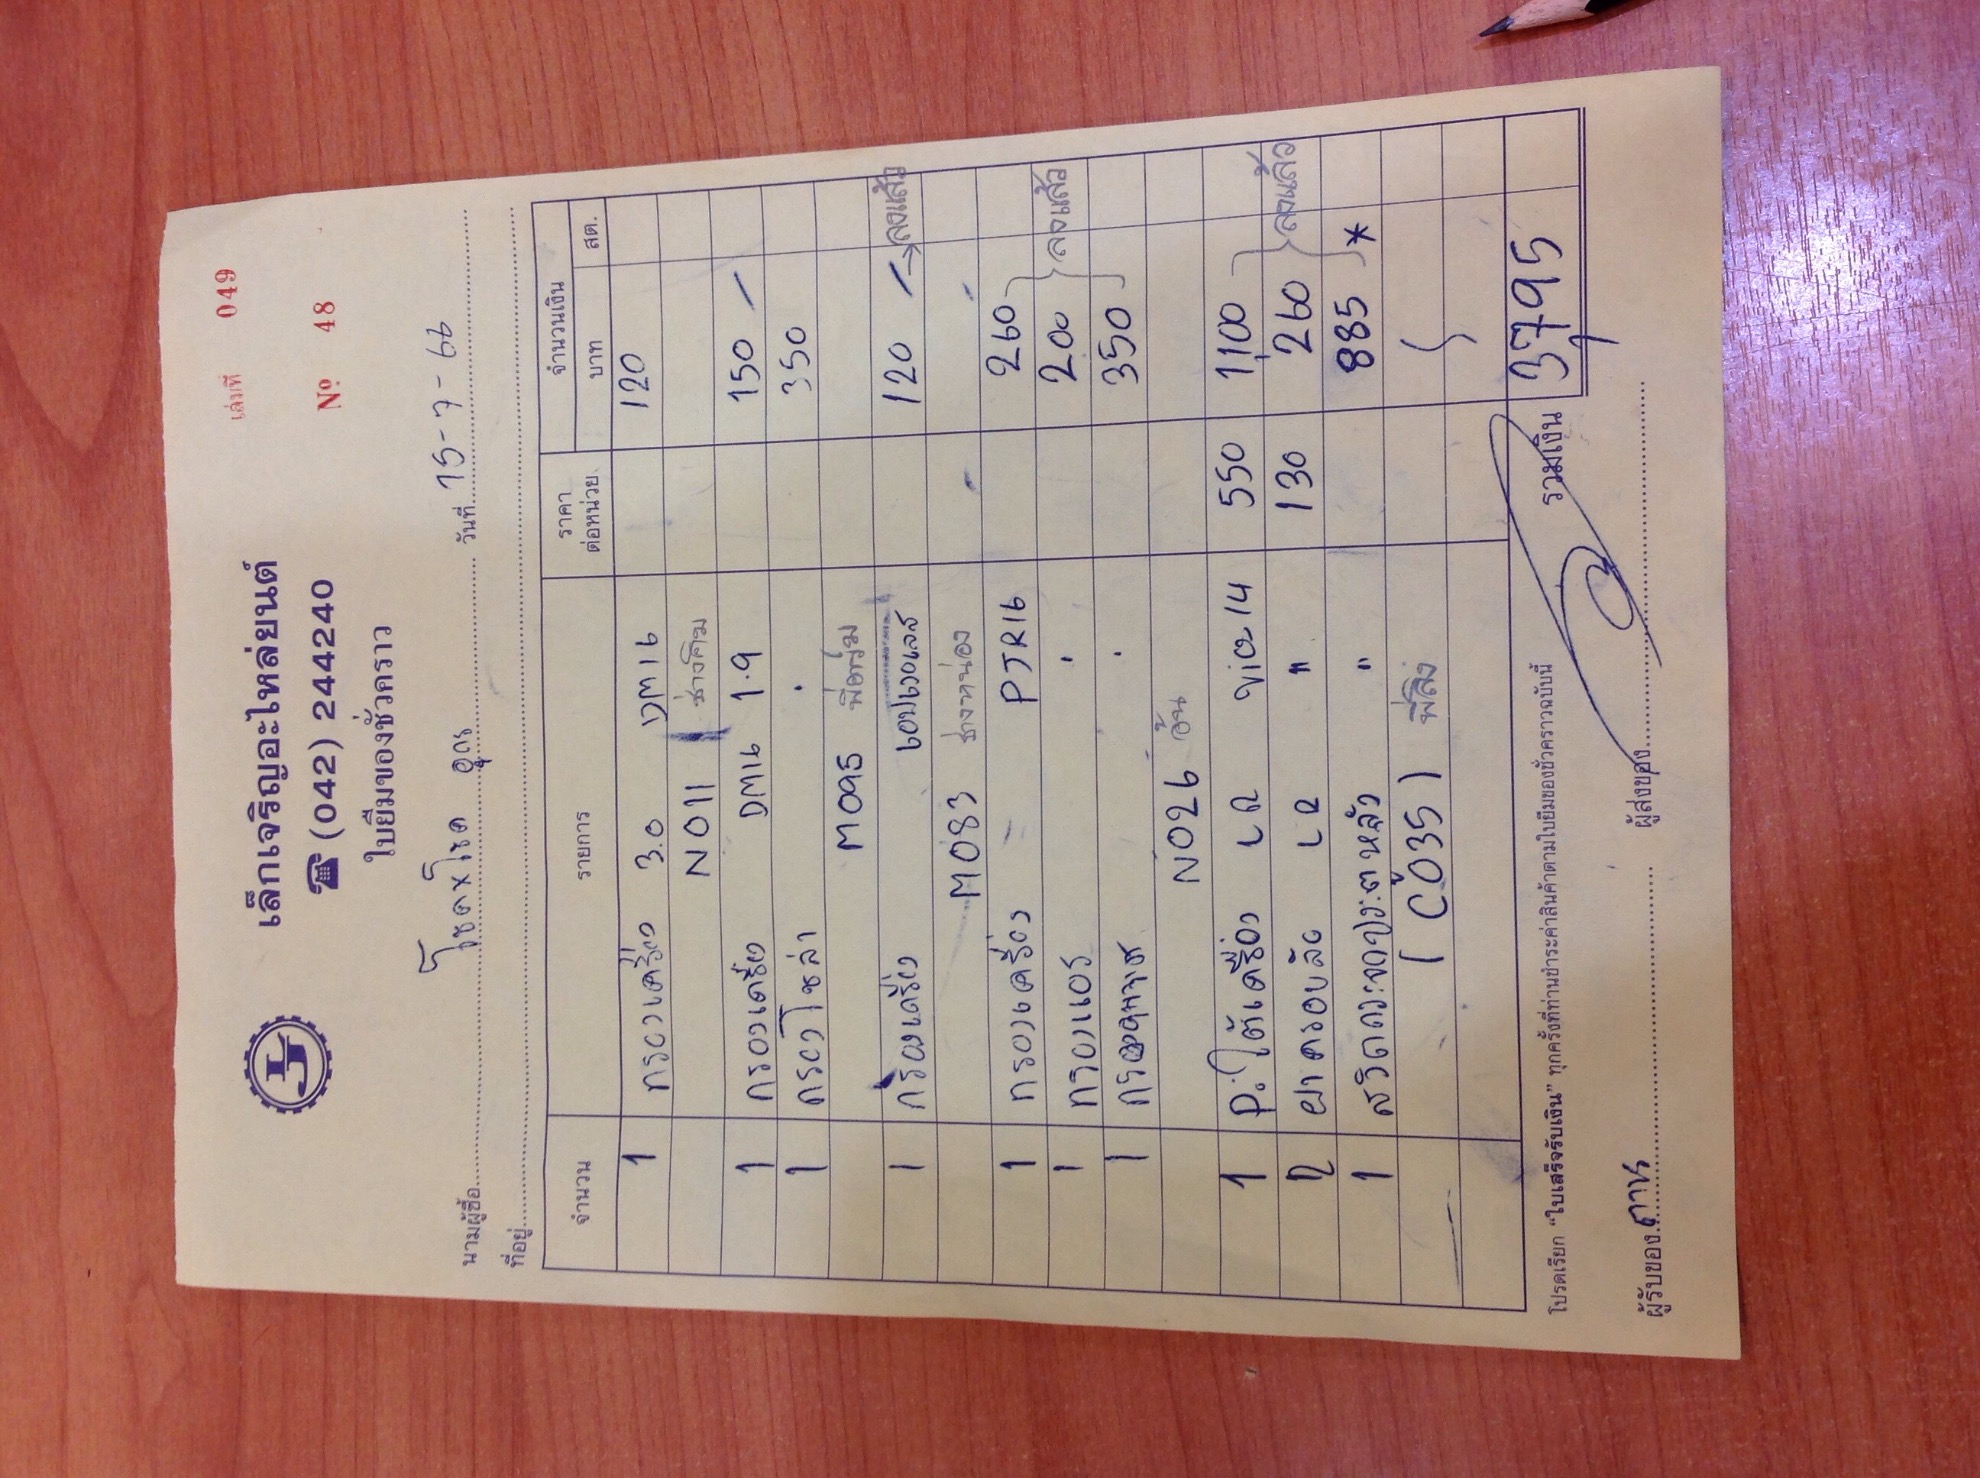 เล่มที่ 049
เล็กเจริญอะไหล่ยนต์
☎ (042) 244240
Nº 48
ใบยืมของชั่วคราว
นามผู้ซื้อ โชค x โชค อุดร วันที่ 15-7-66
ที่อยู่
จำนวน รายการ ราคาต่อหน่วย จำนวนเงิน
บาท สต.
1 กรองเครื่อง 3.0 DM16 120
N011 ช่างคิม
1 กรองเครื่อง DM16 1.9 150
1 กรองโซล่า 350
M095
1 กรองเครื่อง 120 ลงแล้ว
M083 ช่างหน่อง
1 กรองเครื่อง PJR16 260
1 กรองแอร์ 200 ลงแล้ว
1 350
N026 อ้น
1 P. ใต้เครื่อง LR Vio 14 550 1,100
2 ยาครอบลัง LR " 130 260 ลงแล้ว
1 " 885 *
( C035 )
รวมเงิน 3,795
โปรดเรียก “ใบเสร็จรับเงิน” ทุกครั้งที่ท่านชำระค่าสินค้าตามใบยืมของชั่วคราวฉบับนี้
ผู้รับของ ผู้ส่งของ